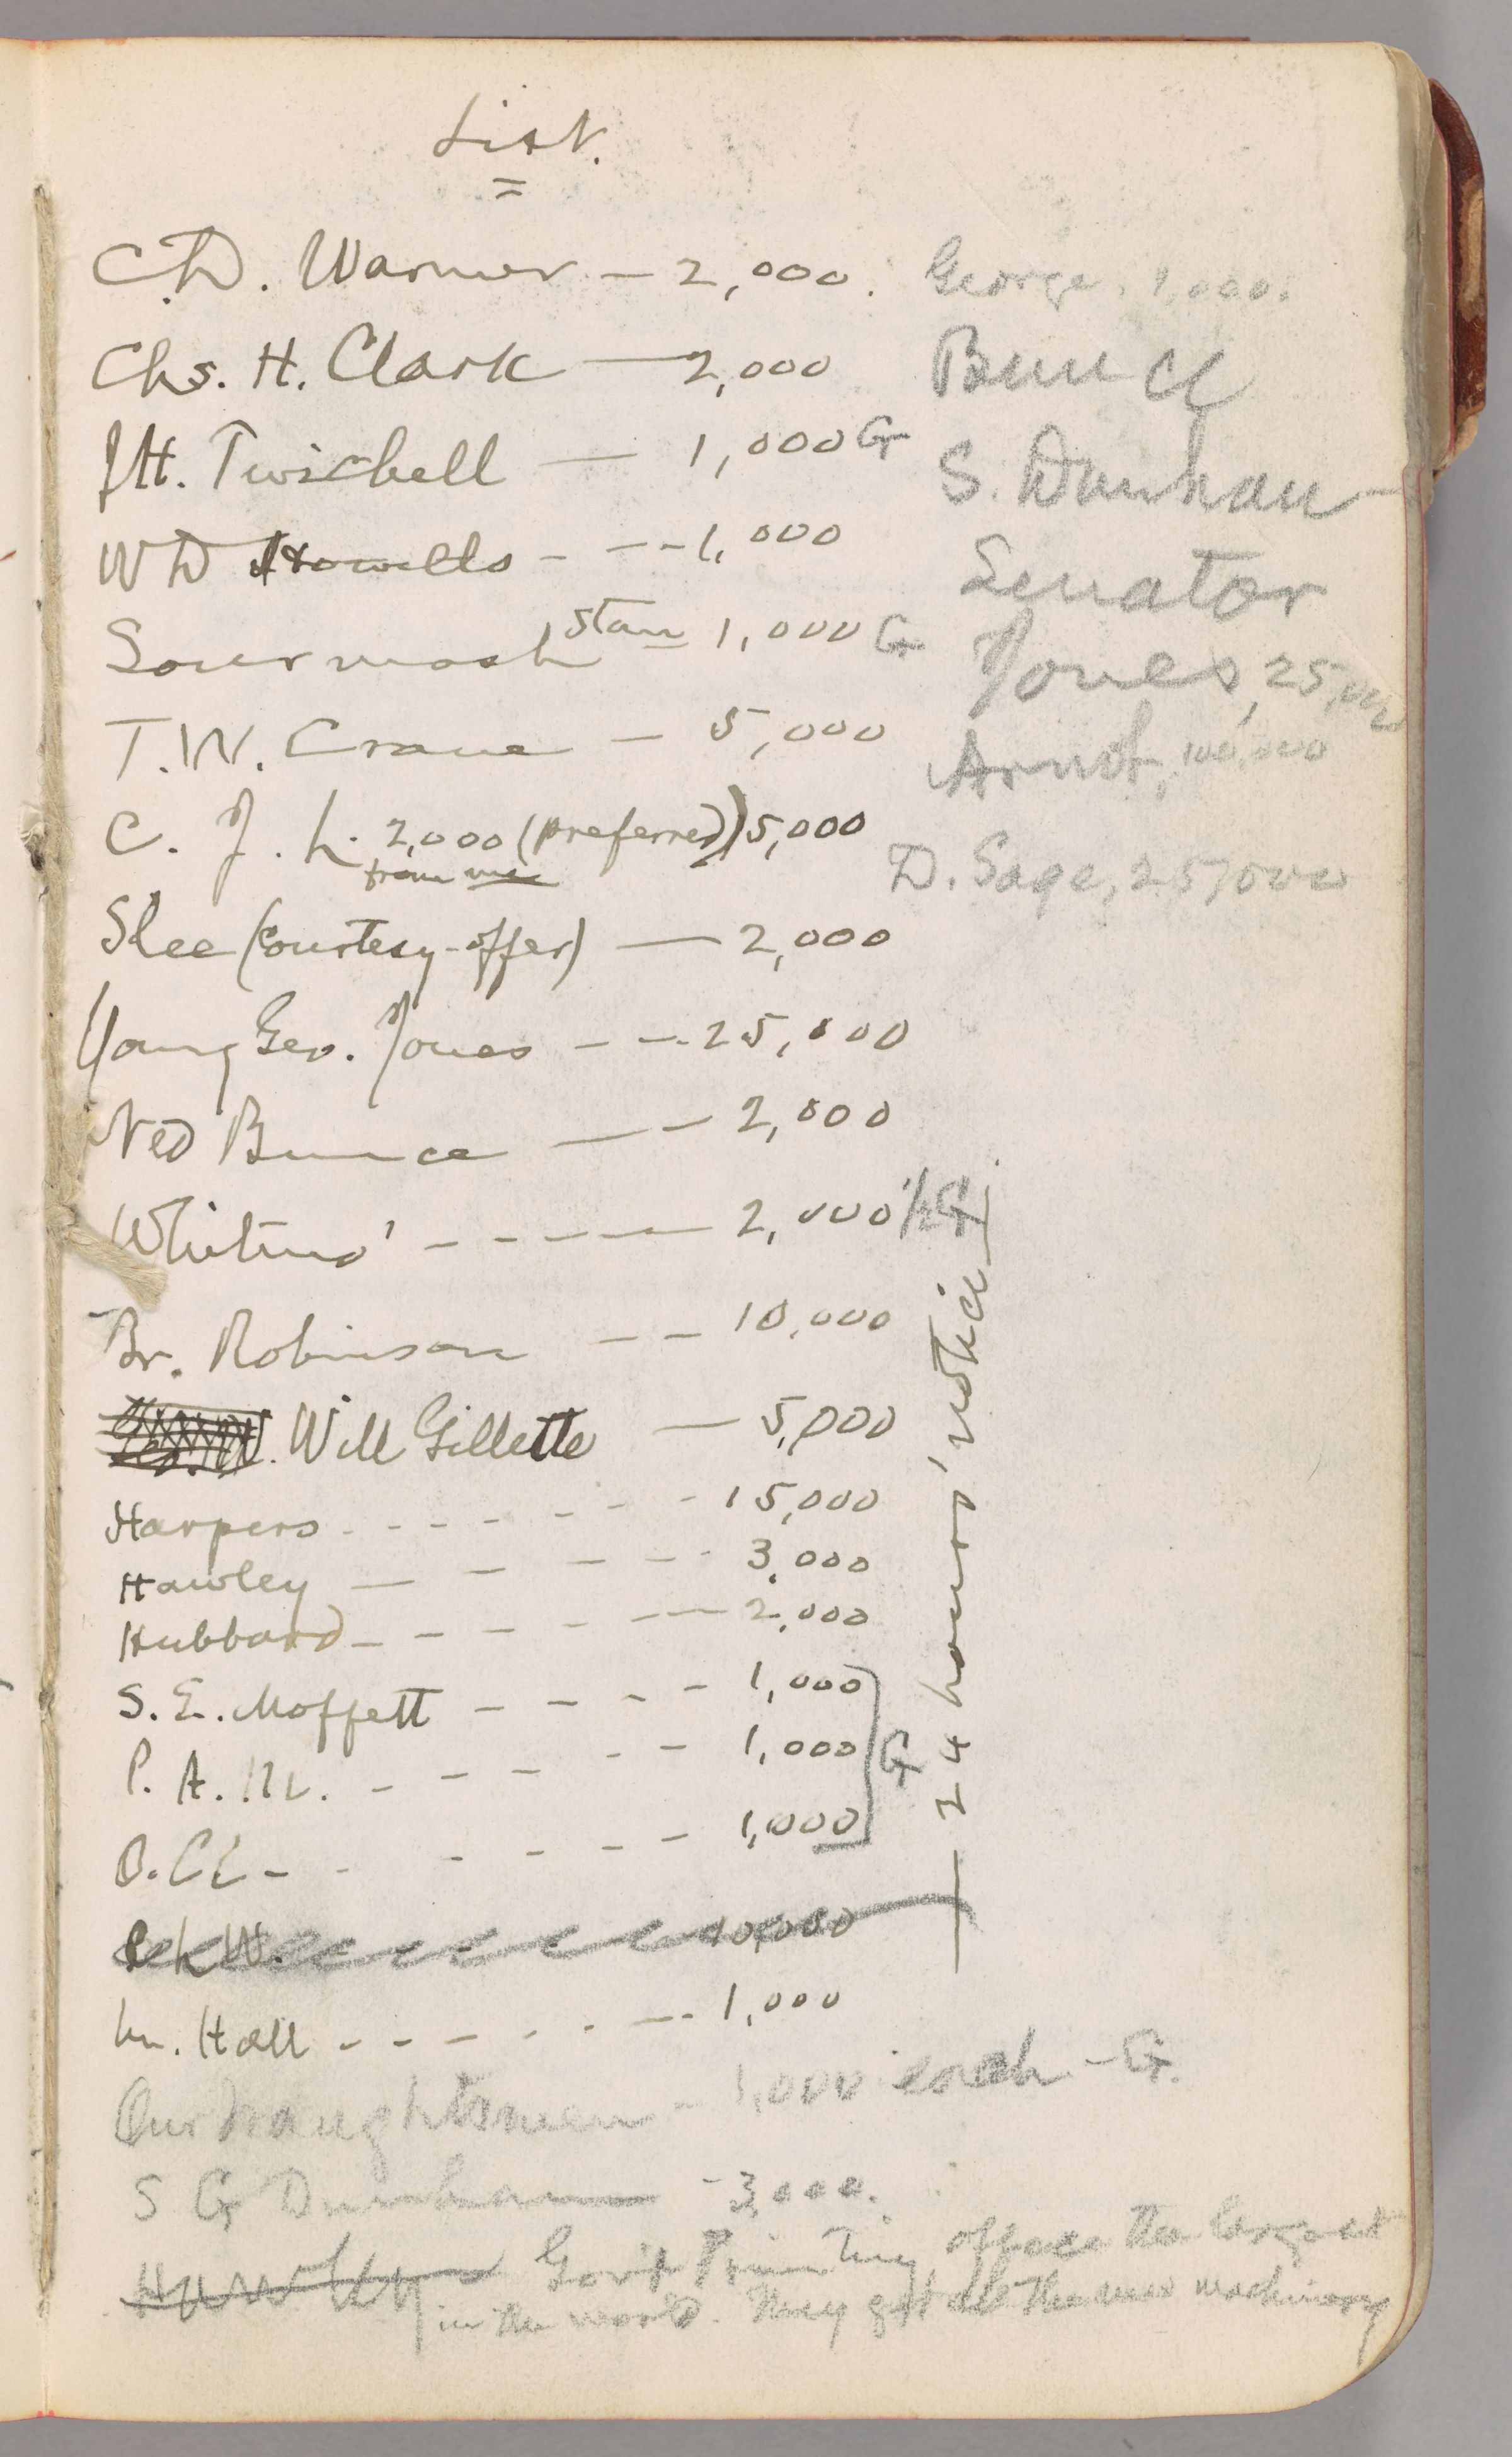 List.
C.D. Warner — 2,000.
Chs. H. Clark — 2,000
J H. Twichell — 1,000 G
W D Howells - - - 1,000
Sourmash Stan 1,000 G
T. W. Crane — 5,000
C. J. L. 2,000 (preferred) 5,000
from me
Slee (courtesy-offer) — 2,000
Young Geo. Jones - - - 25,000
Ned Bunce — - 2,000
Whitmo' - - - — 2,000 1/2 G
Br. Robinson - - 10,000
Will Gillette — 5,000
Harpers - - - - - - 15,000
Hawley — - - - - 3,000
Hubbard - - - - - — 2,000
S. E. Moffett - - - - 1,000
P. A. M. - - - - - 1,000
G
O. C. - - - - - - 1,000
10,000
Hall - - - - - - 1,000
Our draughtsmen - 1,000 each - G.
S G Dunham - 3,000.
Hawley Gov't Printing office the largest
in the world. They get all the new machinery
— 24 hours' notice —
George. 1,000.
Bunce
S. Dunham
Senator
Jones, 25,000
Arnot, 100,000
D. Sage, 25,000